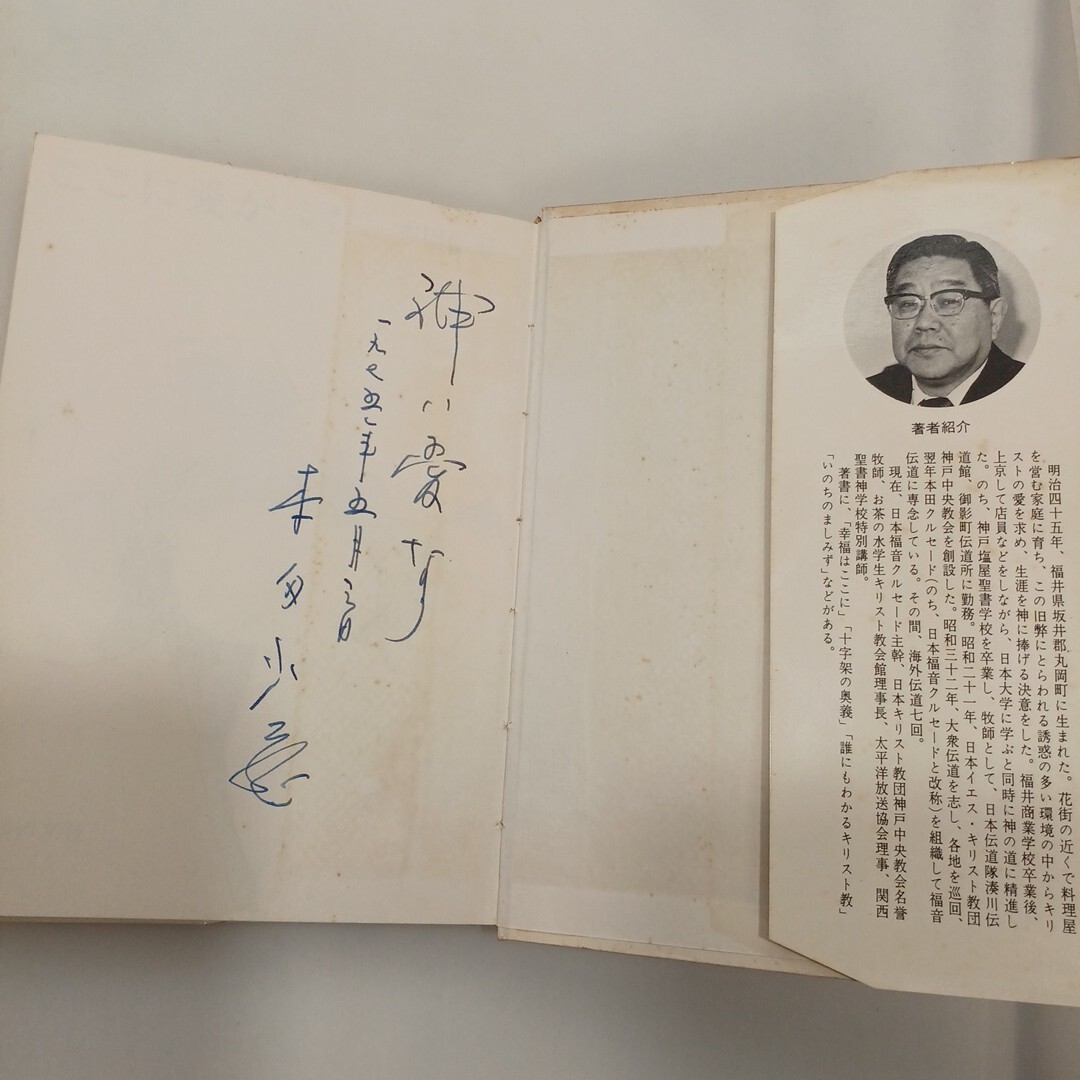 著者紹介
明治四十五年、福井県坂井郡丸岡町に生まれた。花街の近くで料理屋
を営む家庭に育ち、この旧弊にとらわれる誘惑の多い環境の中からキリ
ストの愛を求め、生涯を神に捧げる決意をした。福井商業学校卒業後、
上京して店員などをしながら、日本大学に学ぶと同時に神の道に精進し
た。のち、神戸塩屋聖書学校を卒業し、牧師として、日本伝道隊湊川伝
道館、御影町伝道所に勤務。昭和二十一年、日本イエス・キリスト教団
神戸中央教会を創設した。昭和三十二年、大衆伝道を志し、各地を巡回、
翌年本田クルセード(のち、日本福音クルセードと改称)を組織して福音
伝道に専念している。その間、海外伝道七回。
現在、日本福音クルセード主幹、日本キリスト教団神戸中央教会名誉
牧師、お茶の水学生キリスト教会館理事長、太平洋放送協会理事、関西
聖書神学校特別講師。
著書に、「幸福はここに」「十字架の奥義」「誰にもわかるキリスト教」
「いのちのましみず」などがある。
神ハ愛なり
一九七五年五月三日
本田弘慈